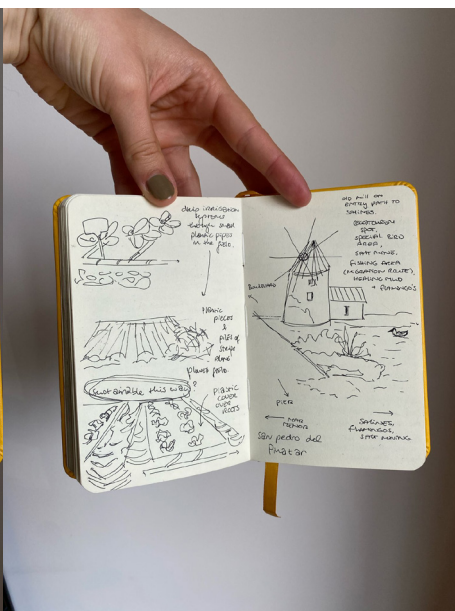 drip irrigation
systems
through small
plastic pipes
in the field.
Plastic
pieces
&
piles of
plastic field
sustainable this way
?
PLASTIC
COVER
OVER
ROOTS
old mill on
entry path to
salinas.
SPOT,
SPECIAL BIRD
AREA,
SALT MINE,
FISHING AREA
(MIGRATION ROUTE),
HEALING MUD
+ FLAMINGO'S
BOULEVARD
PIER
MAR
MENOR
SALINES,
FLAMINGOS,
SALT MINING
san pedro del
Pinatar